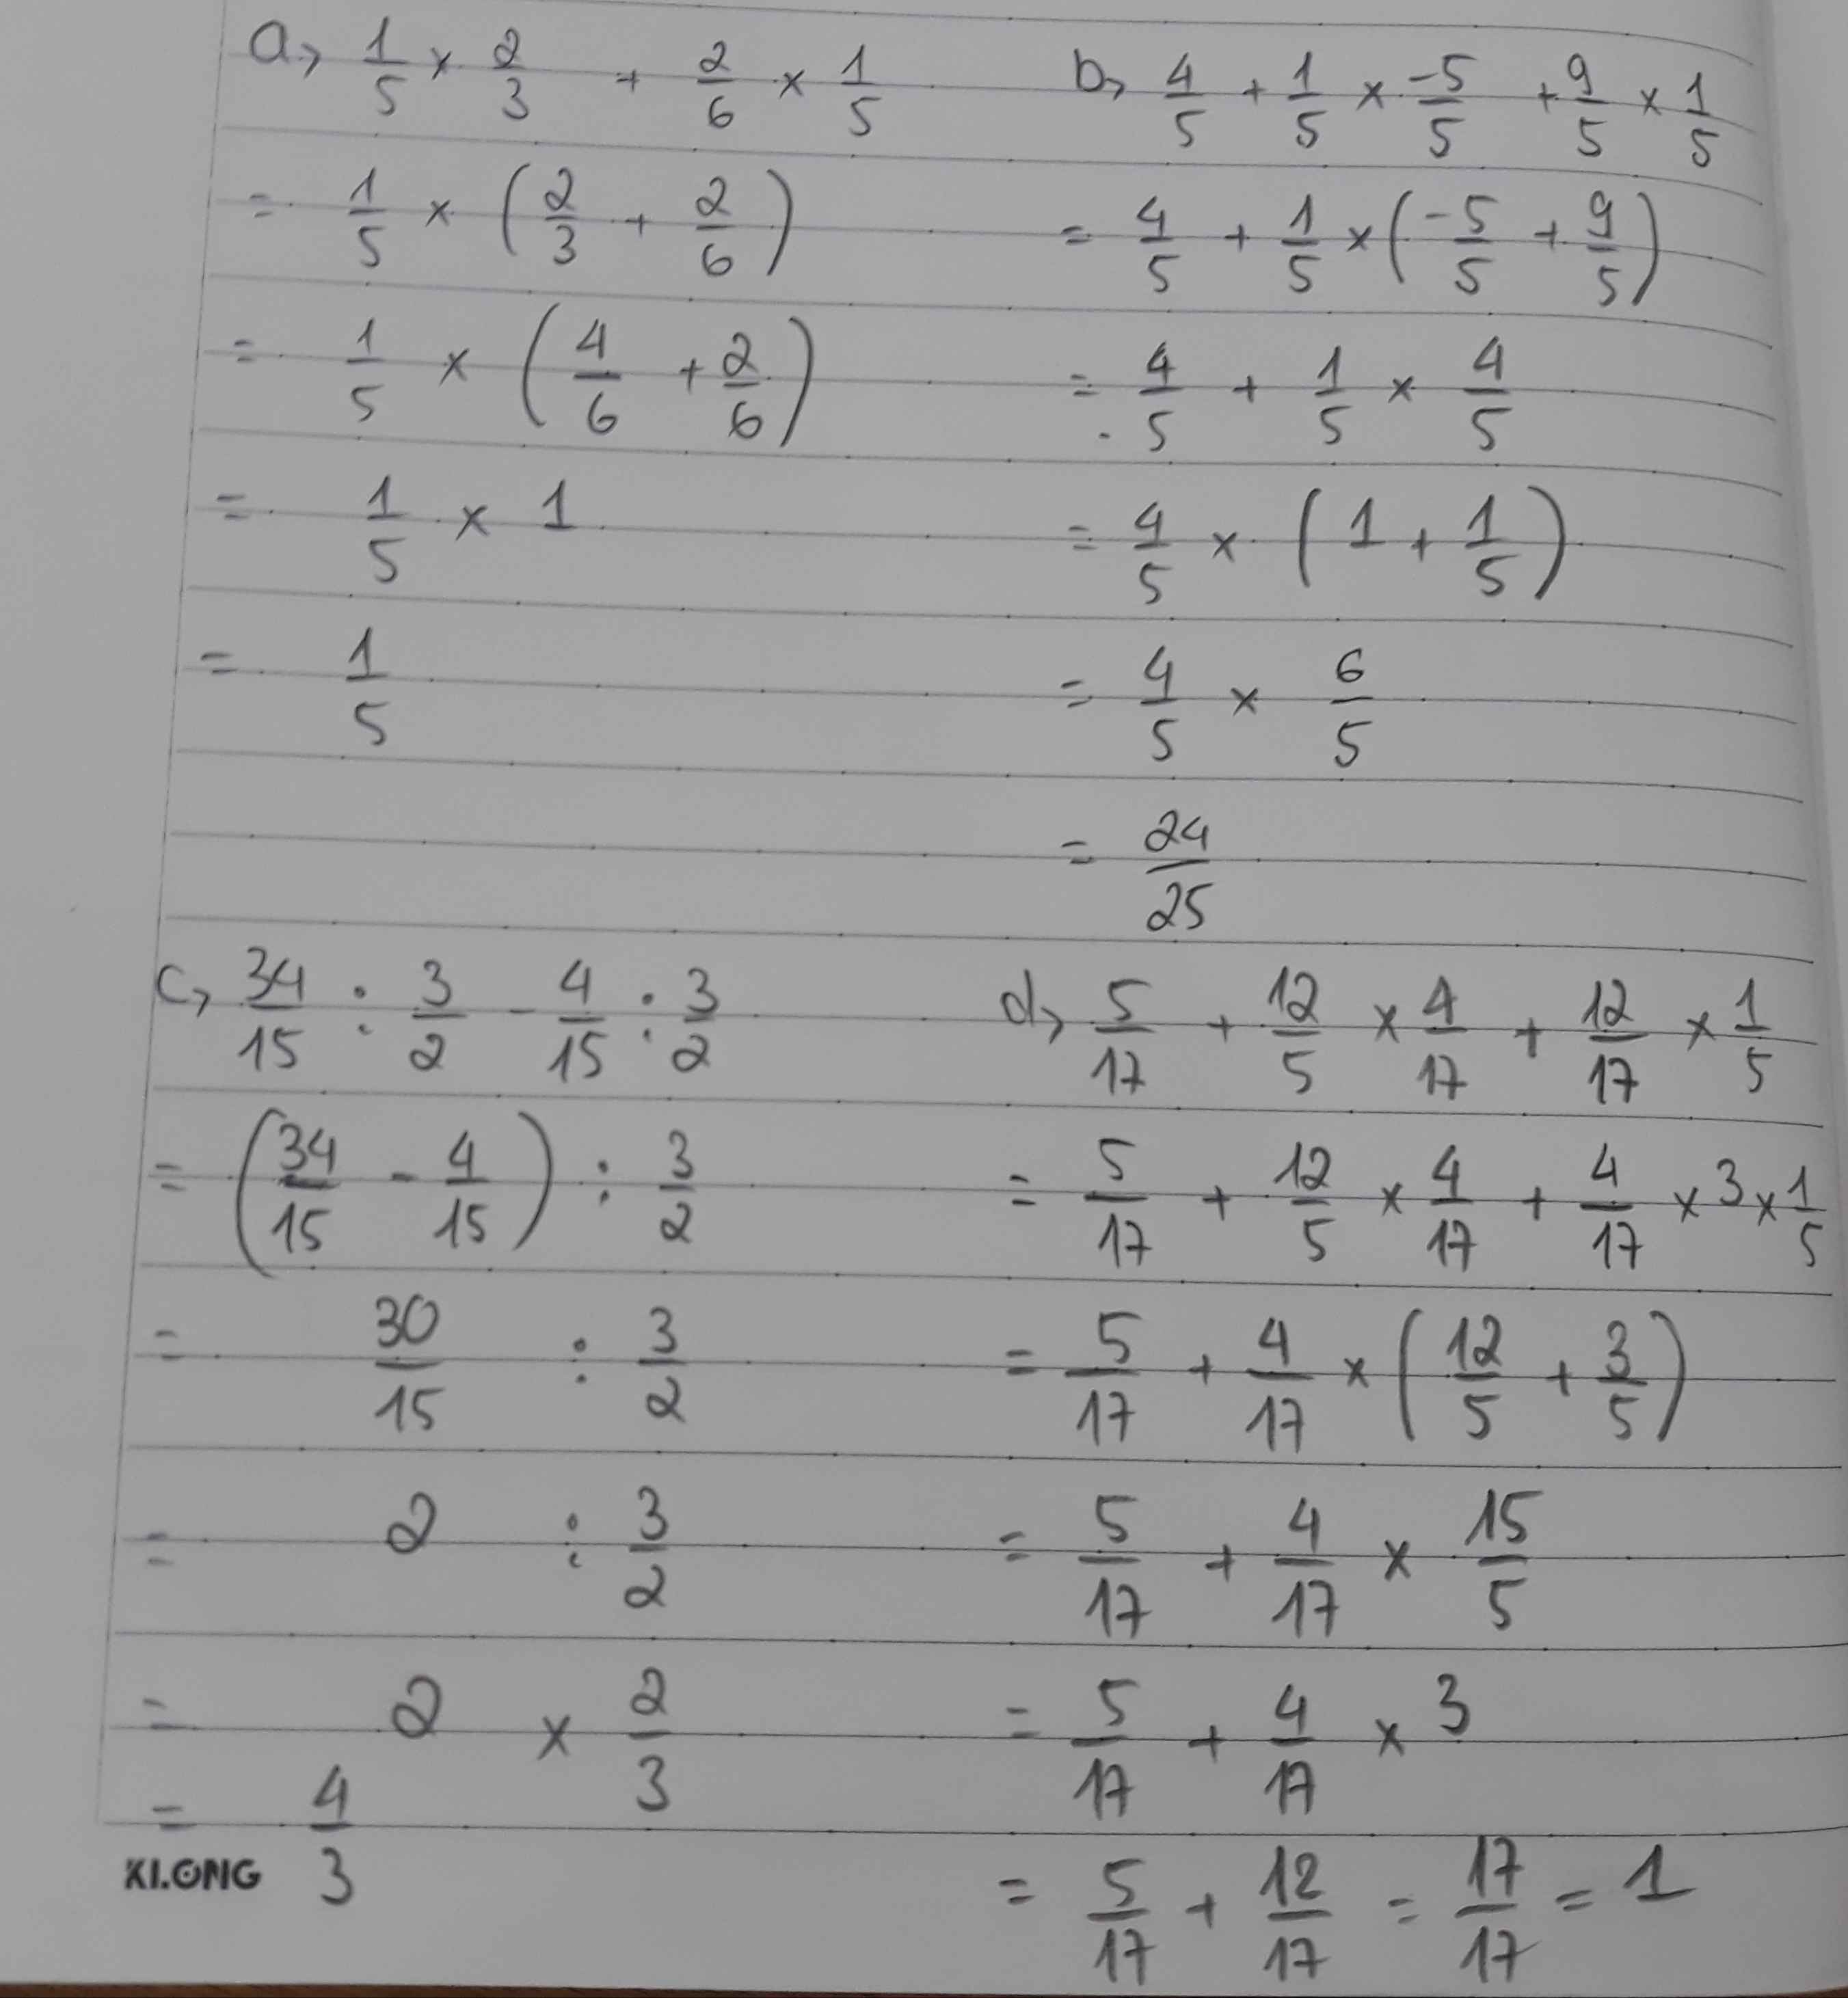 a, 1/5 × 2/3 + 2/6 × 1/5
= 1/5 × (2/3 + 2/6)
= 1/5 × (4/6 + 2/6)
= 1/5 × 1
= 1/5
b, 4/5 + 1/5 × -5/5 + 9/5 × 1/5
= 4/5 + 1/5 × (-5/5 + 9/5)
= 4/5 + 1/5 × 4/5
= 4/5 × (1 + 1/5)
= 4/5 × 6/5
= 24/25
c, 34/15 : 3/2 - 4/15 : 3/2
= (34/15 - 4/15) : 3/2
= 30/15 : 3/2
= 2 : 3/2
= 2 × 2/3
= 4/3
d, 5/17 + 12/5 × 4/17 + 12/17 × 1/5
= 5/17 + 12/5 × 4/17 + 4/17 × 3 × 1/5
= 5/17 + 4/17 × (12/5 + 3/5)
= 5/17 + 4/17 × 15/5
= 5/17 + 4/17 × 3
= 5/17 + 12/17 = 17/17 = 1
KLONG